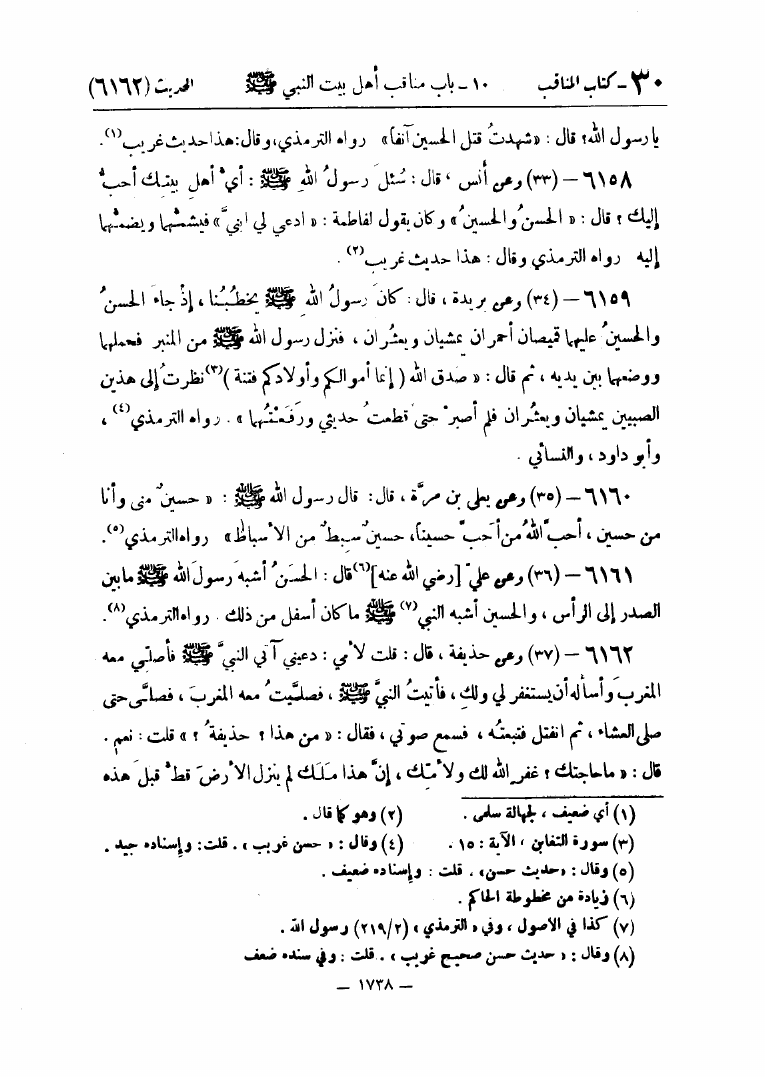 ٣٠ - كتاب المناقب ١٠ - باب مناقب أهل بيت النبي ﷺ الحديث (٦١٦٢)
يا رسول الله؟ قال : «شهدتُ قتل الحسين آنفاً» رواه الترمذي، وقال: هذا حديث غريب(١).
٦١٥٨ - (٣٣) وعن أنس ، قال : سُئلَ رسولُ اللهِ ﷺ : أيُّ أهلِ بيتِكَ أحبُّ
إليك ؟ قال : « الحسنُ والحسينُ » وكان يقول لفاطمة : « ادعي لي ابنيَّ » فيشمُّهما ويضمُّهما
إليه رواه الترمذي وقال : هذا حديث غريب(٢) .
٦١٥٩ - (٣٤) وعن بريدة ، قال : كانَ رسولُ اللهِ ﷺ يخطُبُنا ، إذْ جاءَ الحسنُ
والحسينُ عليهما قميصان أحمران يمشيان ويعثُران ، فنزل رسول الله ﷺ من المنبر فحملهما
ووضعهما بين يديه ، ثم قال : « صدق الله ( إنما أموالكم وأولادكم فتنة )(٣) نظرتُ إلى هذين
الصبيين يمشيان ويعثُران فلم أصبرْ حتى قطعتُ حديثي ورَفَعْتُهما » . رواه الترمذي(٤) ،
وأبو داود ، والنسائي .
٦١٦٠ - (٣٥) وعن يعلى بن مرَّة ، قال : قال رسول الله ﷺ : « حسينٌ مني وأنا
من حسين ، أحبَّ اللهُ من أحبَّ حسيناً، حسينٌ سِبطٌ من الأسباط » رواه الترمذي(٥).
٦١٦١ - (٣٦) وعن عليّ [رضي الله عنه](٦) قال : الحسَنُ أشبهَ رسولَ الله ﷺ ما بين
الصدر إلى الرأس ، والحسين أشبه النبي(٧) ﷺ ما كان أسفل من ذلك . رواه الترمذي(٨).
٦١٦٢ - (٣٧) وعن حذيفة ، قال : قلت لأمي : دعيني آتي النبيَّ ﷺ فأصلّي معه
المغربَ وأسأله أن يستغفر لي ولكِ ، فأتيتُ النبيَّ ﷺ ، فصلَّيتُ معه المغربَ ، فصلَّى حتى
صلى العشاء ، ثم انفتل فتبعتُه ، فسمع صوتي ، فقال : « من هذا ؟ حذيفةُ ؟ » قلت : نعم .
قال : « ما حاجتك ؟ غفر الله لك ولأمّك ، إنَّ هذا مَلَك لم ينزل الأرضَ قطُّ قبلَ هذه
(١) أي ضعيف ، لجهالة سلمى . (٢) وهو كما قال .
(٣) سورة التغابن ، الآية : ١٥ . (٤) وقال : « حسن غريب » . قلت : وإسناده جيد .
(٥) وقال : « حديث حسن » . قلت : وإسناده ضعيف .
(٦) زيادة من مخطوطة الحاكم .
(٧) كذا في الأصول ، وفي « الترمذي » (٢١٩/٢) رسول الله .
(٨) وقال : « حديث حسن صحيح غريب » . قلت : وفي سنده ضعف
- ١٧٣٨ -